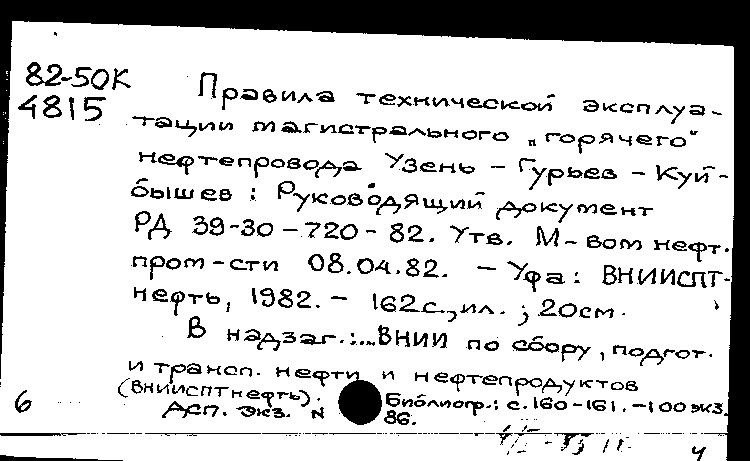 82-50К
4815
Правила технической эксплуа-
тации магистрального „горячего"
нефтепровода Узень - Гурьев - Куй-
бышев : Руководящий документ
РД 39-30-720-82. Утв. М-вом нефт.
пром-сти 08.04.82. - Уфа : ВНИИСПТ-
нефть, 1982. - 162с., ил. ; 20см.
В надзаг.: ...ВНИИ по сбору, подгот.
и трансп. нефти и нефтепродуктов
(ВНИИСПТнефть).
Библиогр.: с.160-161. -100 экз.
6 Асп. экз. N 86.